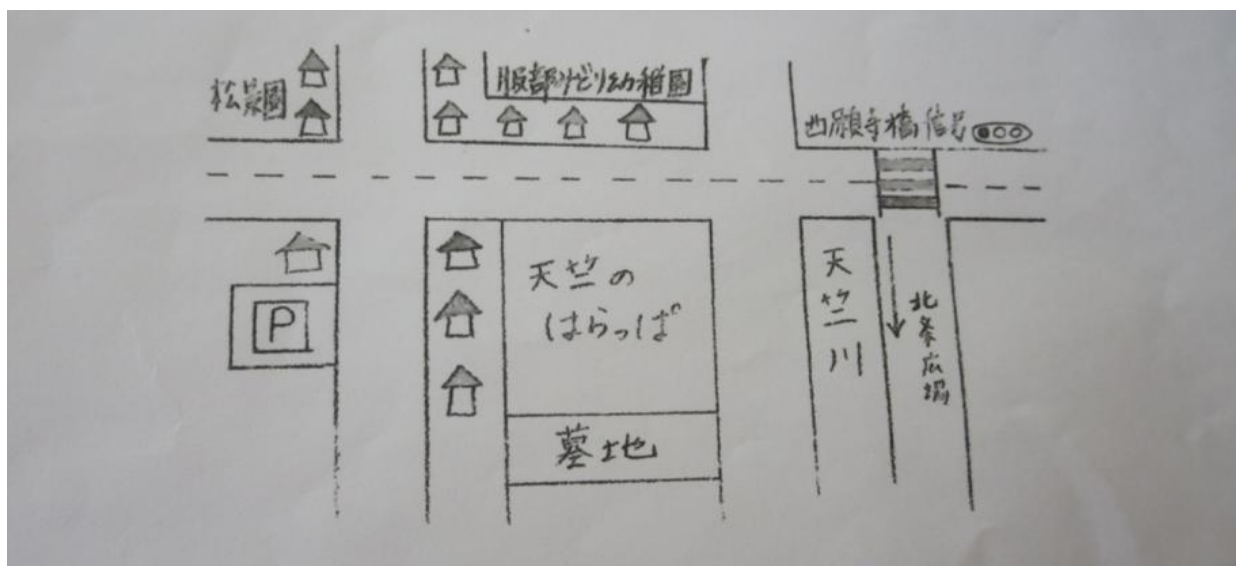 松景園
服部みどり幼稚園
西願寺橋信号
P
天竺の
はらっぱ
墓地
天竺川
北条広場